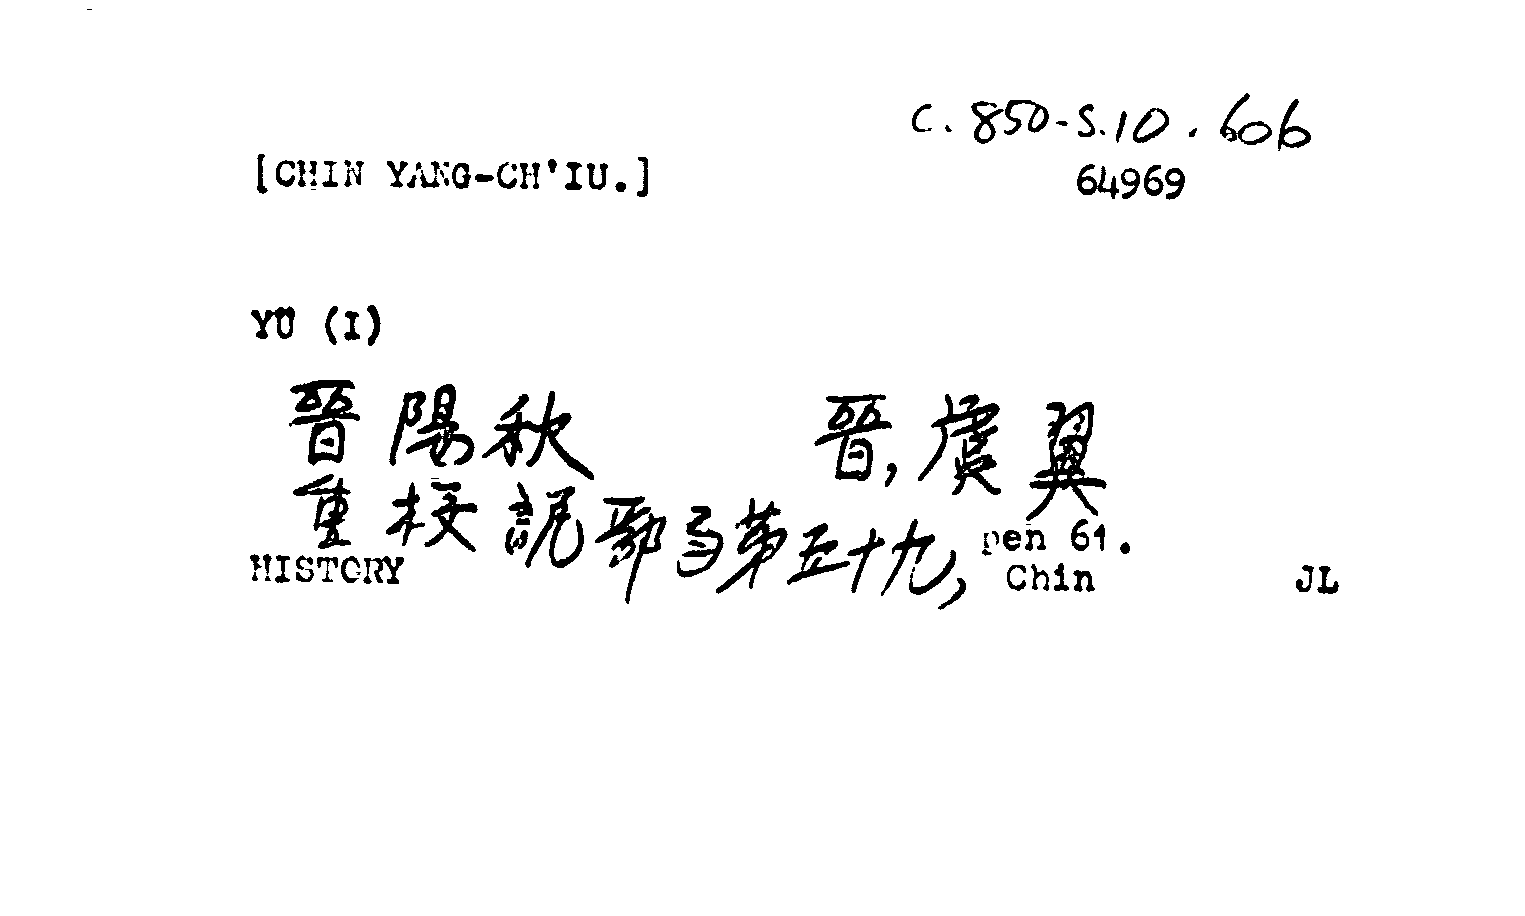 C. 850-S.10.606
[CHIN YANG-CH'IU.]
64969
YÜ (I)
晉陽秋 晉, 虞翼
重校說郛弓第五十九, pen 61.
HISTORY Chin JL